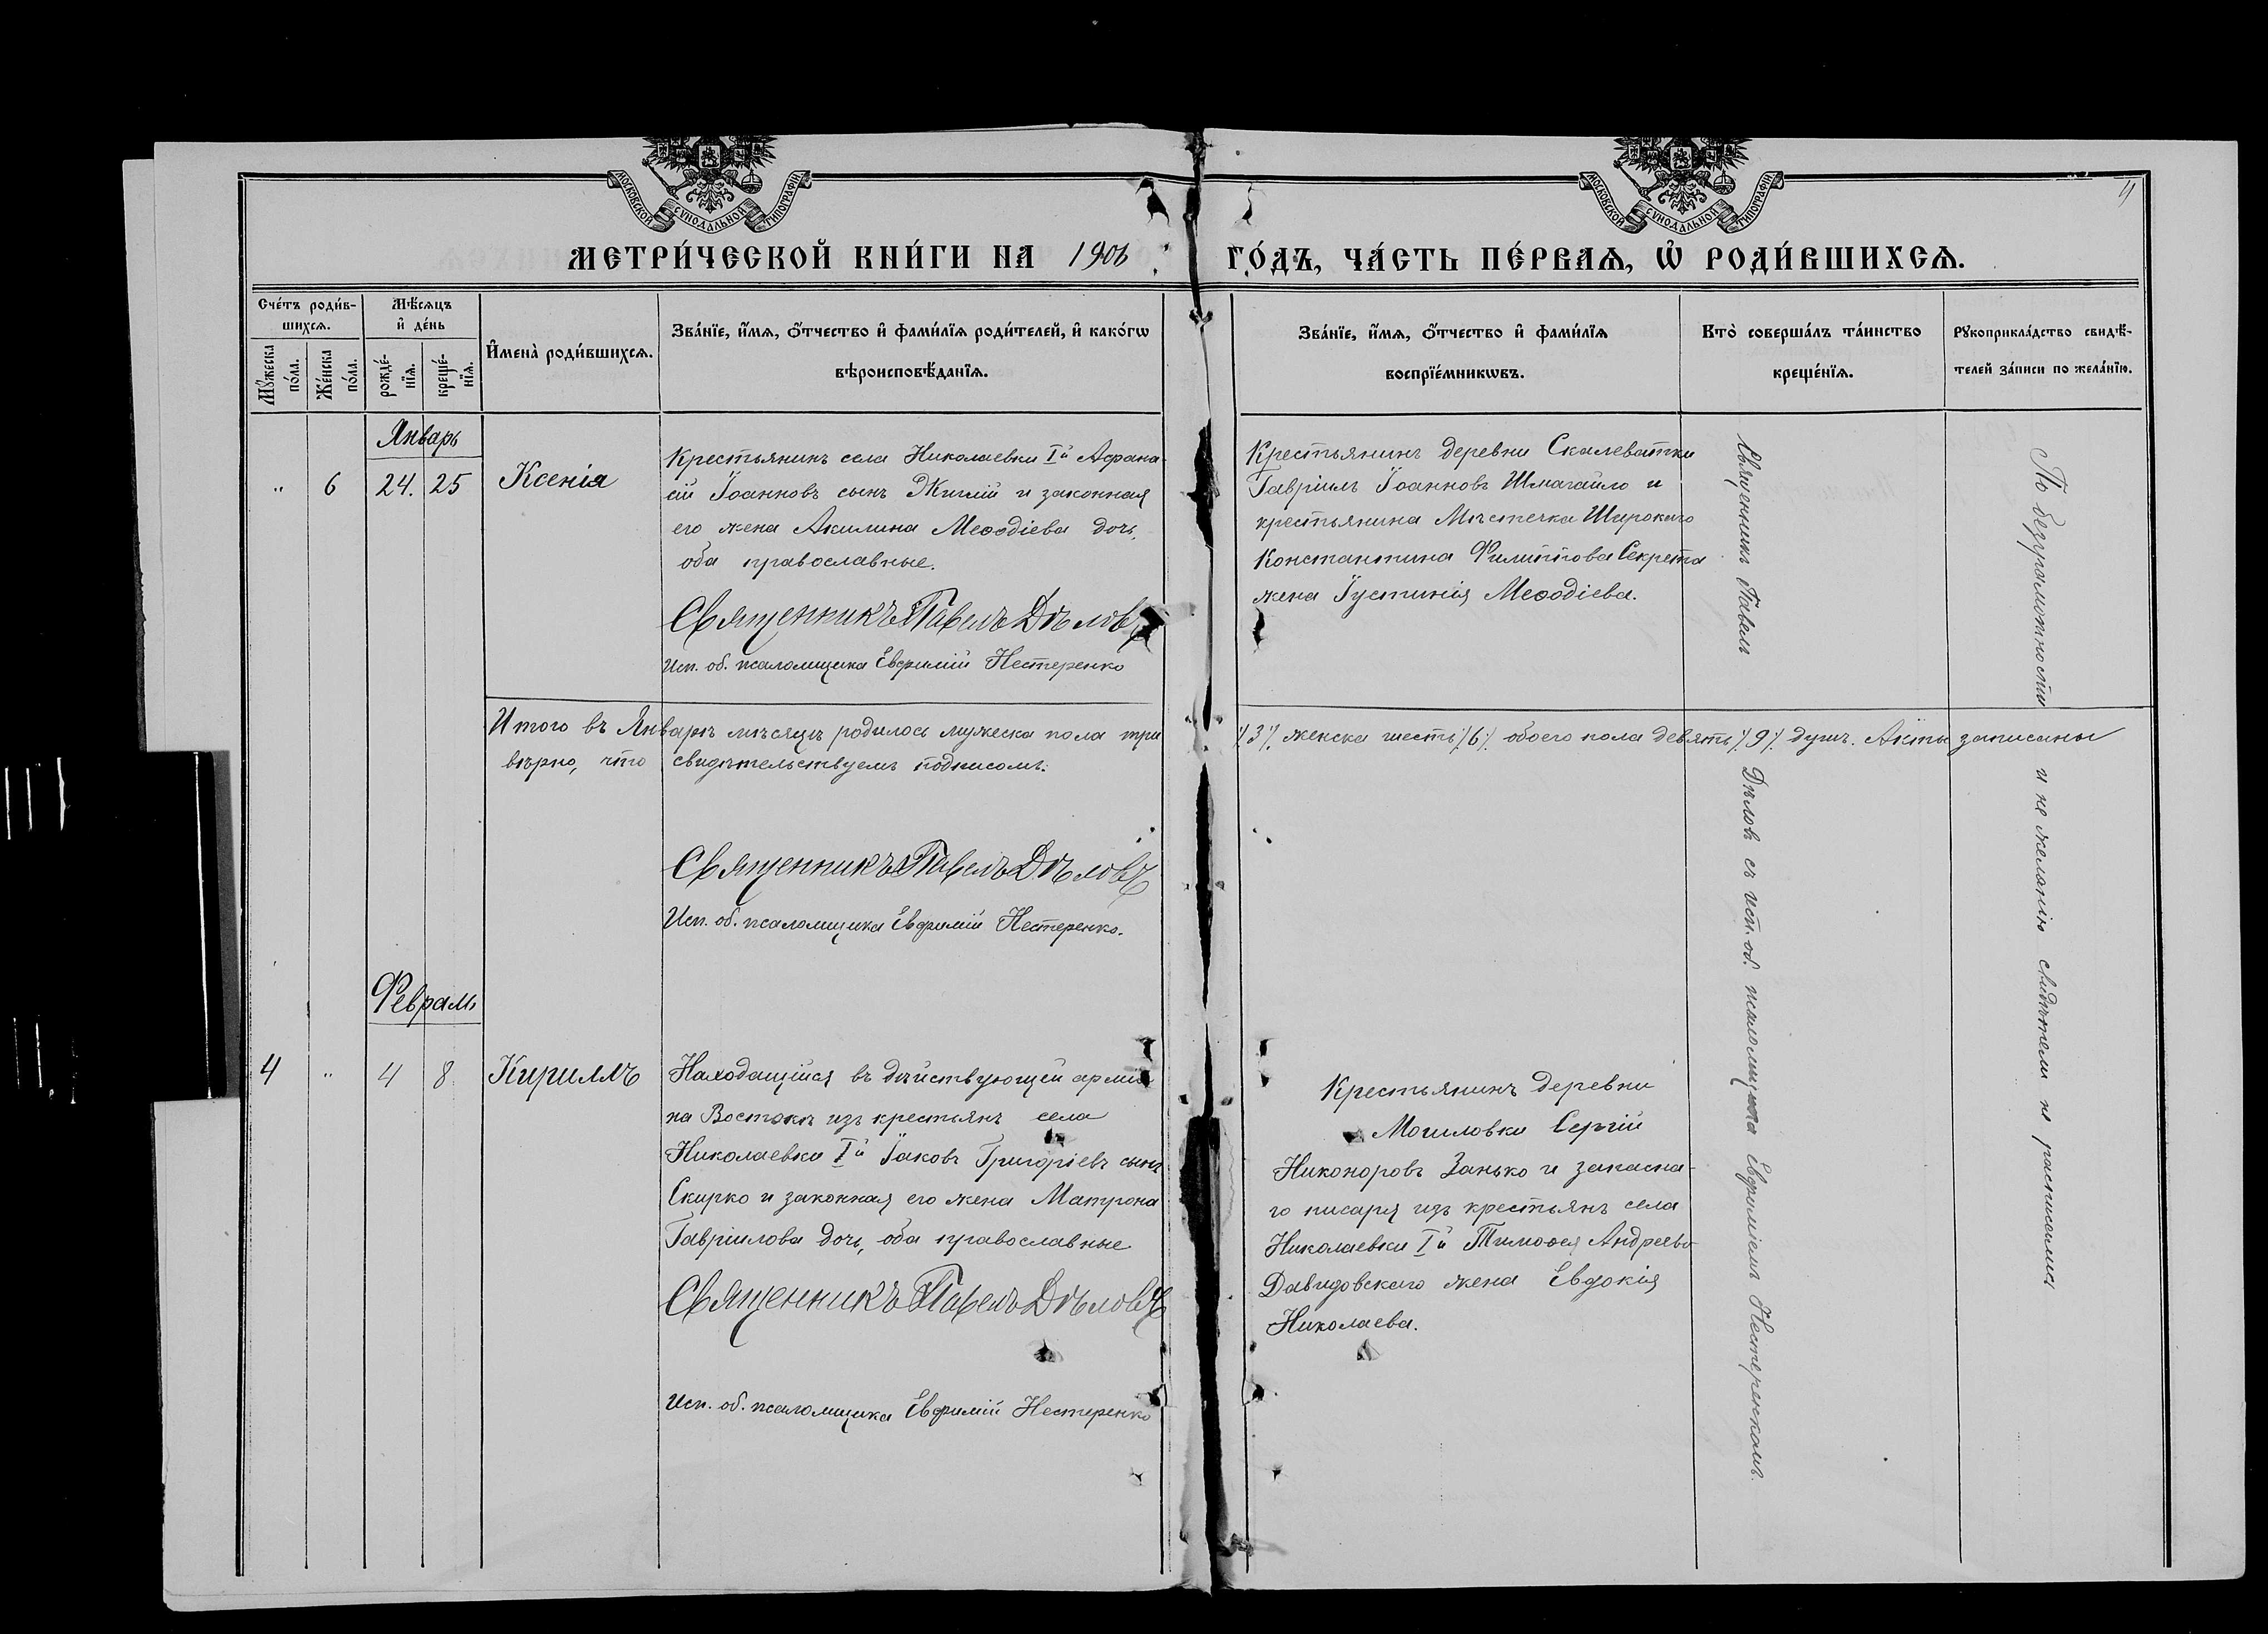 МОСКОВСКОЙ СѴНОДАЛЬНОЙ ТИПОГРАФІИ
МОСКОВСКОЙ СѴНОДАЛЬНОЙ ТИПОГРАФІИ
МЕТРИ́ЧЕСКОЙ КНИ́ГИ НА 1906 ГО́ДЪ, ЧА́СТЬ ПЕ́РВАѦ, Ѡ҆ РОДИ́ВШИХСѦ.
Сче́тъ роди́в-
шихсѧ.
Мꙋ́жеска по́ла.
Же́нска по́ла.
Мѣ́сѧцъ
и҆ де́нь
рожде́-
нїѧ.
креще́-
нїѧ.
И҆мена̀ роди́вшихсѧ.
Зва́нїе, и҆́мѧ, ѻ҆́тчество и҆ фами́лїѧ роди́телей, и҆ како́гѡ
вѣроисповѣ́данїѧ.
Зва́нїе, и҆́мѧ, ѻ҆́тчество и҆ фами́лїѧ
воспрїе́мникѡвъ.
Кто̀ соверша́лъ та́инство
креще́нїѧ.
Рꙋкоприкла́дство свидѣ́-
телей за́писи по жела́нїю.
Январь
" 6 24. 25 Ксенія
Крестьянинъ села Николаевки Iй Афана-
сій Іоанновъ сынъ и законная
его жена Акилина Меѳодіева дочь,
оба православные.
Священникъ Павелъ Дѣловъ
Исп. об. псаломщика Евфимій Нестеренко
Крестьянинъ деревни Скалеватки
Гавріилъ Іоанновъ Шмагайло и
крестьянина Мѣстечка Широкаго
Константина Филиппова Секрета
жена Іустинія Меѳодіева.
Священникъ Павелъ Дѣловъ съ исп. об. псаломщика Евфиміемъ Нестеренкомъ.
По безграмотности и не желанію свидѣтели не расписались
Итого въ Январѣ мѣсяцѣ родилось мужеска пола три /3/, женска шесть /6/ обоего пола девять /9/ душъ. Акты записаны
вѣрно, что свидѣтельствуемъ подписомъ:
Священникъ Павелъ Дѣловъ
Исп. об. псаломщика Евфимій Нестеренко.
Февраль
4 " 4 8. Кириллъ
Находящійся въ дѣйствующей арміи
на Востокѣ изъ крестьянъ села
Николаевки Iй Іаковъ Григоріевъ сынъ
Скирко и законная его жена Матрона
Гавріилова дочь, оба православные
Священникъ Павелъ Дѣловъ
Исп. об. псаломщика Евфимій Нестеренко
Крестьянинъ деревни
Могиловки Сергій
Никоноровъ Занько и запасна-
го писаря изъ крестьянъ села
Николаевки Iй Тимоѳея Андреева
Давидовскаго жена Евдокія
Николаева.